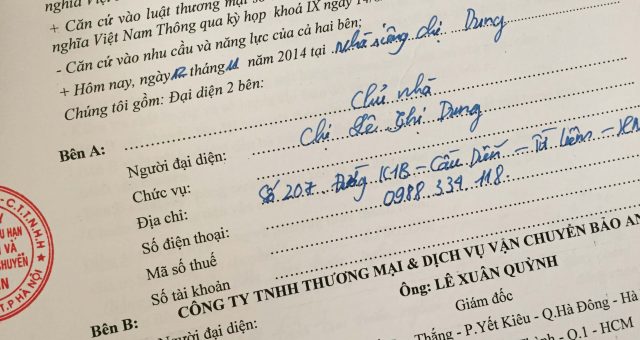 nghĩa Việt
+ Căn cứ vào luật thương mại số
nghĩa Việt Nam Thông qua kỳ họp khoá IX ngày 14/
- Căn cứ vào nhu cầu và năng lực của cả hai bên;
+ Hôm nay, ngày 12 tháng 11 năm 2014 tại nhà riêng chị Dung
Chúng tôi gồm: Đại diện 2 bên:
Bên A: Chủ nhà
Người đại diện: Chị Lê Thị Dung
Chức vụ:
Địa chỉ: Số 207 Đường K1B - Cầu Diễn - Từ Liêm - HN
Số điện thoại: 0988 334 118
Mã số thuế
Số tài khoản
Bên B: CÔNG TY TNHH THƯƠNG MẠI & DỊCH VỤ VẬN CHUYỂN BẢO AN
Người đại diện: Ông: LÊ XUÂN QUỲNH
Giám đốc
Thắng - P.Yết Kiêu - Q.Hà Đông - Hà
- Q.1 - HCM
C.T.T.N.H.H
VÀ
CHUYỂN
T.P HÀ NỘI